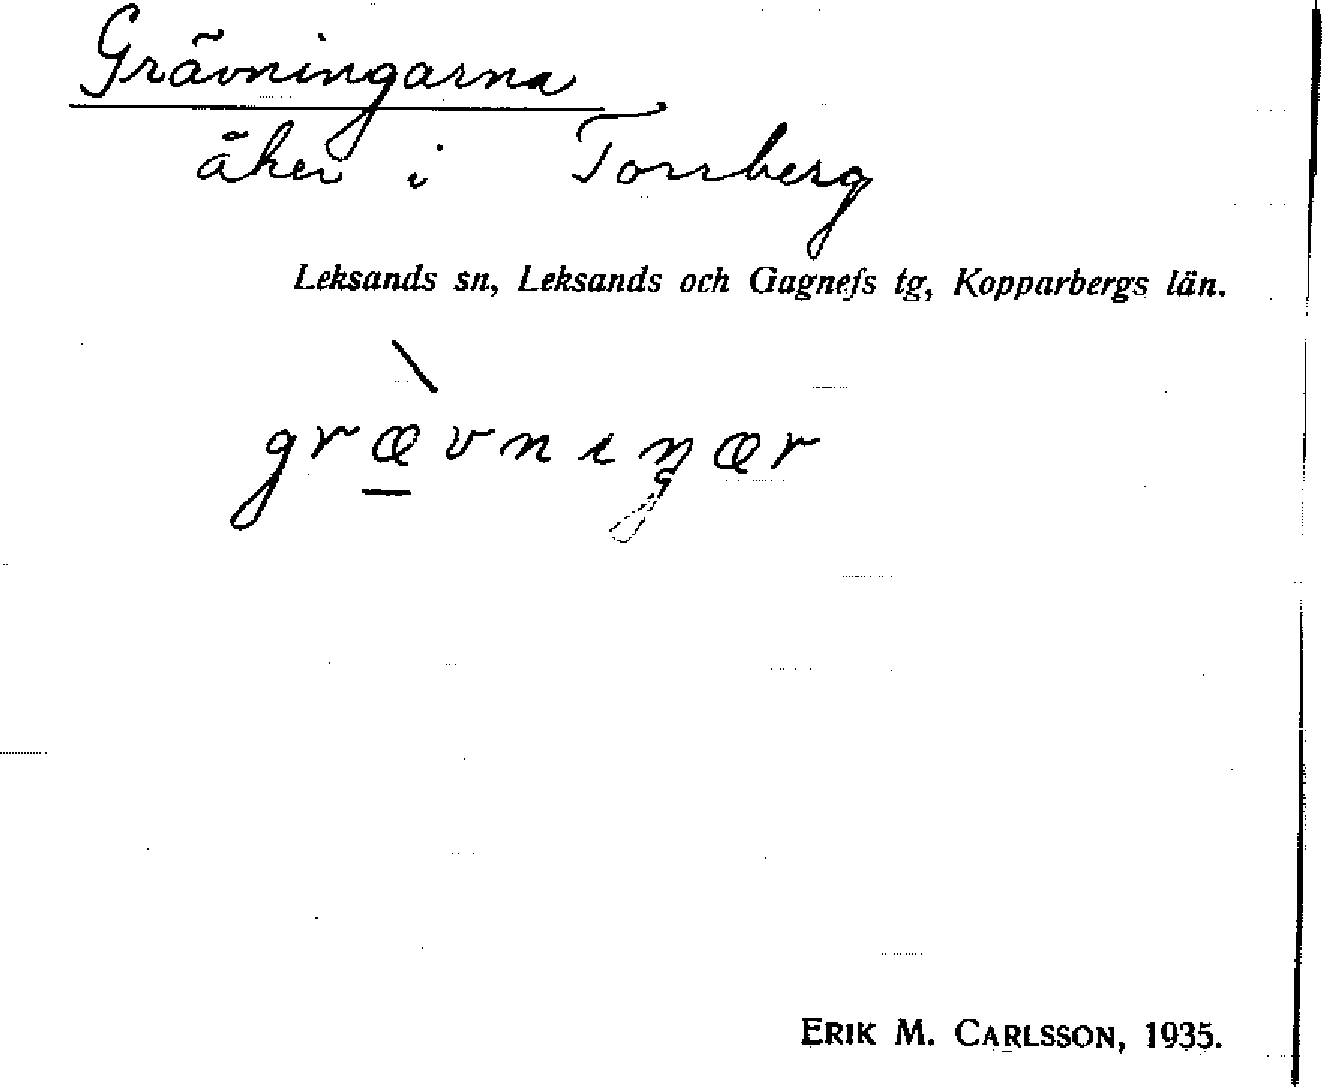 Grävningarna
åker i Torrberg
Leksands sn, Leksands och Gagnefs tg, Kopparbergs län.
grævnıŋær
ERIK M. CARLSSON, 1935.